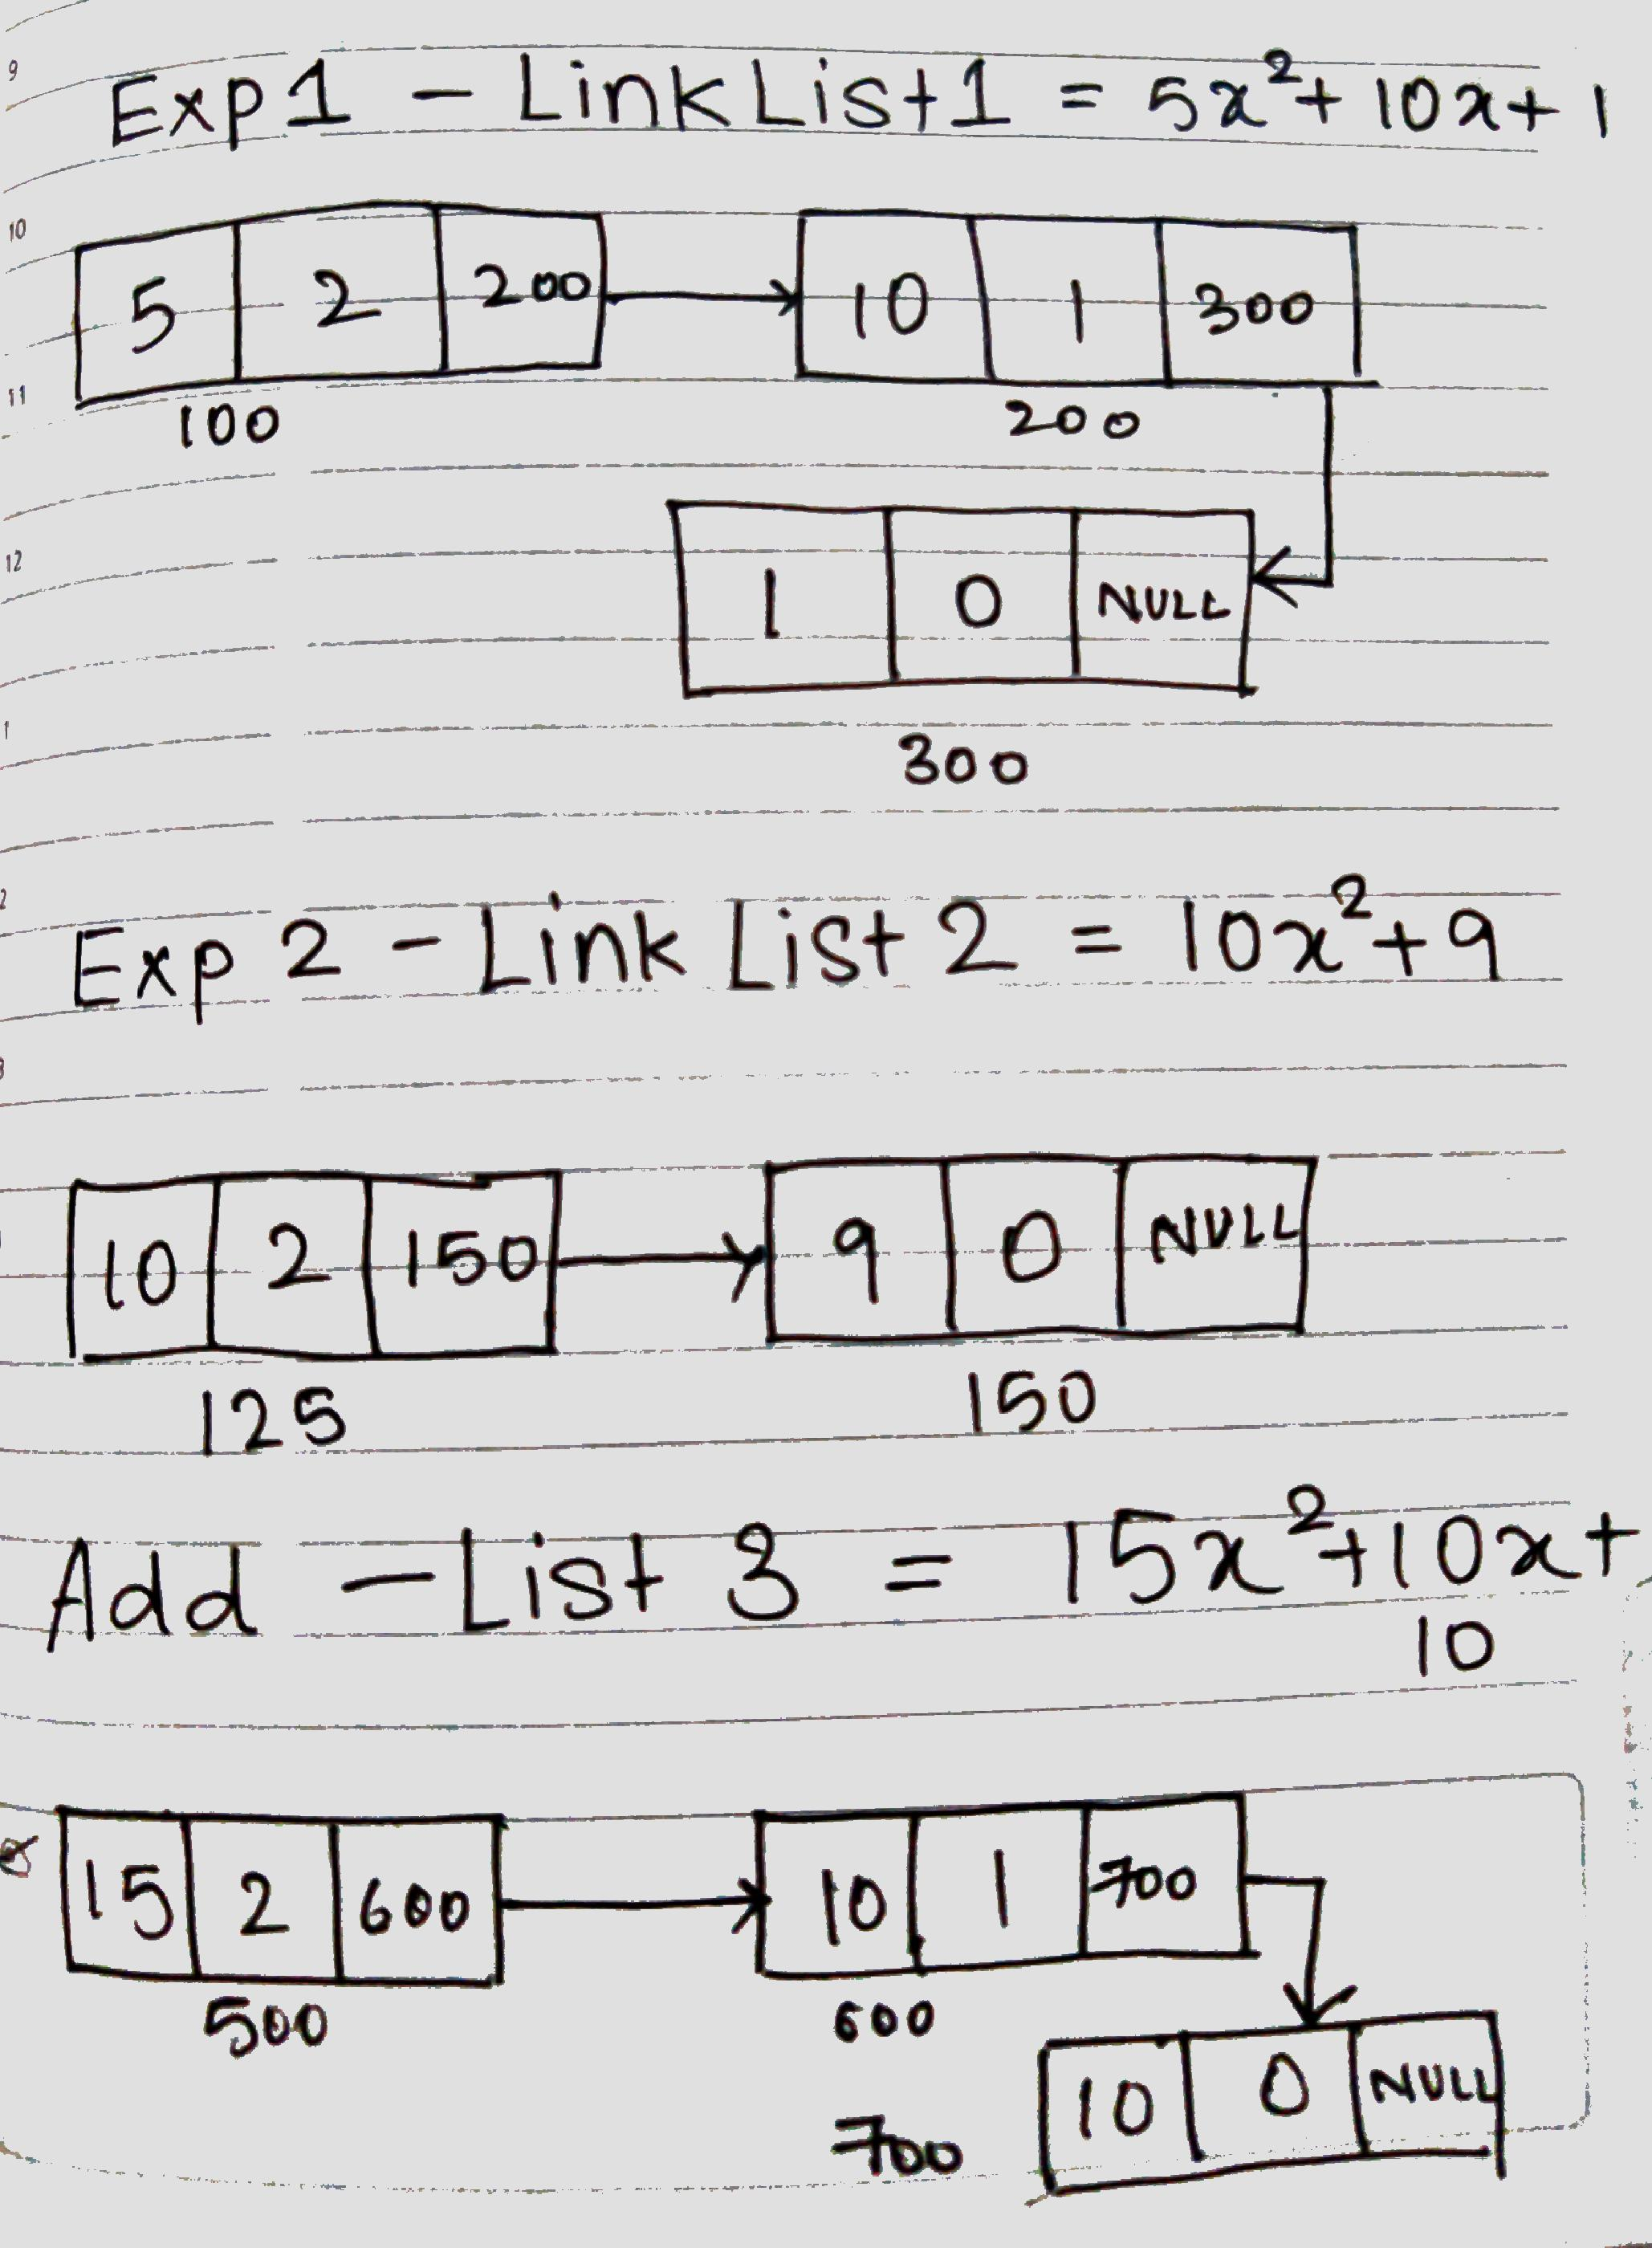 9
Exp 1 - Link List 1 = 5x²+ 10x+ 1
10
5 2 200 10 1 300
11
100 200
12
1 0 NULL
1
300
2
Exp 2 - Link List 2 = 10x²+9
3
10 2 150 9 0 NULL
125 150
Add - List 3 = 15x²+10x+
10
15 2 600 10 1 700
500 600
10 0 NULL
700